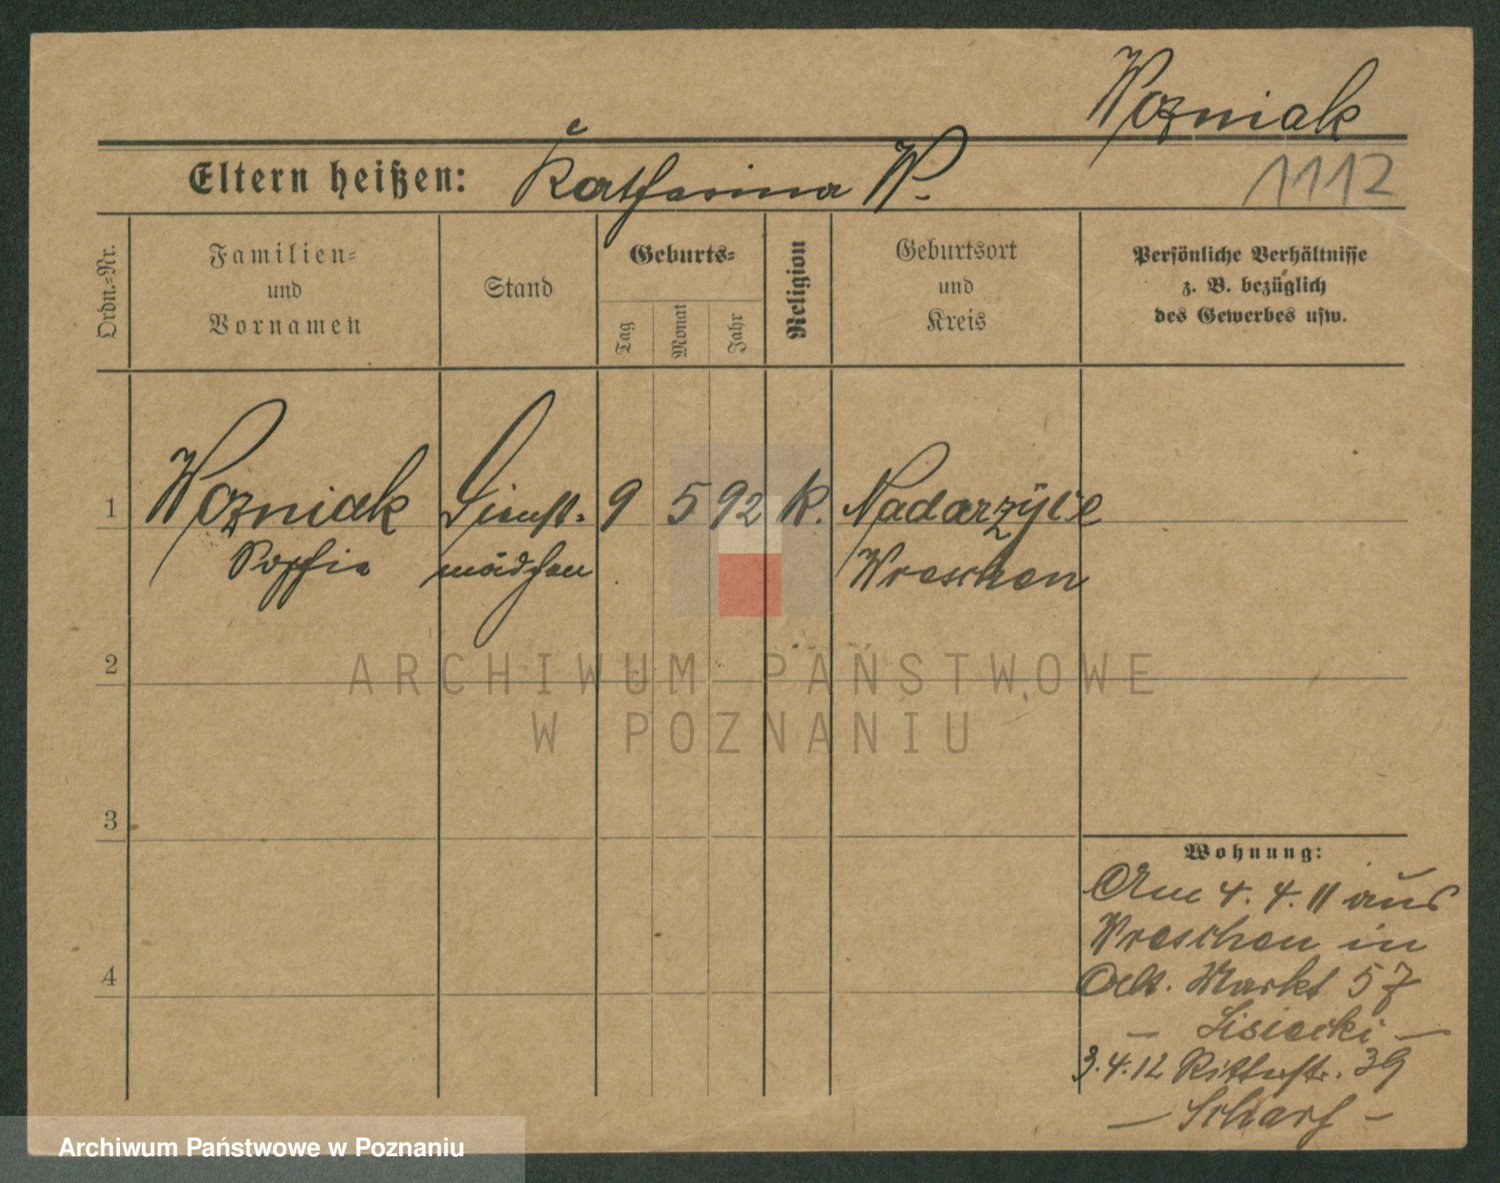 Wozniak
Eltern heißen: Katharina W.
1112
Ordn.-Nr.
Familien-
und
Vornamen
Stand
Geburts-
Tag
Monat
Jahr
Religion
Geburtsort
und
Kreis
Persönliche Verhältnisse
z. B. bezüglich
des Gewerbes usw.
1 Wozniak Dienst- 9 5 92 K. Nadarzyce
Sophie mädchen Wreschen
2
ARCHIWUM PAŃSTWOWE
W POZNANIU
3
Wohnung:
Am 4. 4. 11 aus
Wreschen in
4
Alt. Markt 57
– Lisiecki –
3.4.12 Ritterstr. 39
– Scharf –
Archiwum Państwowe w Poznaniu